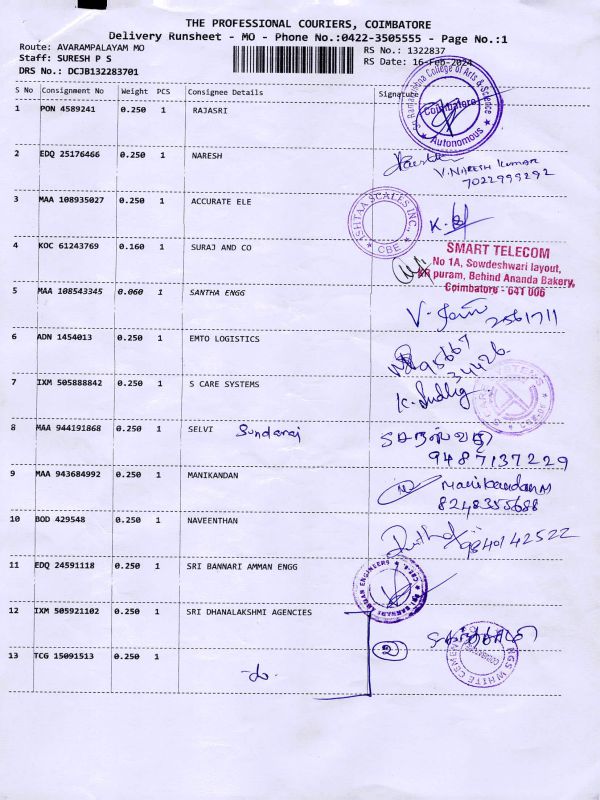 THE PROFESSIONAL COURIERS, COIMBATORE
Delivery Runsheet - MO - Phone No.:0422-3505555 - Page No.:1
Route: AVARAMPALAYAM MO
RS No.: 1322837
Staff: SURESH P S
RS Date: 16-Feb-2024
DRS No.: DCJB132283701
S No Consignment No Weight PCS Consignee Details Signature
1 PON 4589241 0.250 1 RAJASRI
Ramakrishna College of Arts & Science
Coimbatore
★ Autonomous ★
2 EDQ 25176466 0.250 1 NARESH
V.NARESH KUMAR
7022999292
3 MAA 108935027 0.250 1 ACCURATE ELE
ISHTAA SCALES INC.,
CBE
4 KOC 61243769 0.160 1 SURAJ AND CO
SMART TELECOM
No 1A, Sowdeshwari layout,
KR puram, Behind Ananda Bakery,
Coimbatore - 641 006
5 MAA 108543345 0.060 1 SANTHA ENGG
2561711
6 ADN 1454013 0.250 1 EMTO LOGISTICS
95667
34426
7 IXM 505888842 0.250 1 S CARE SYSTEMS
8 MAA 944191868 0.250 1 SELVI Sundaraj
9487137229
9 MAA 943684992 0.250 1 MANIKANDAN
Manikandan M
8248355688
10 BOD 429548 0.250 1 NAVEENTHAN
9840142522
11 EDQ 24591118 0.250 1 SRI BANNARI AMMAN ENGG
12 IXM 505921102 0.250 1 SRI DHANALAKSHMI AGENCIES
2
NGS WHITE CEMENT
13 TCG 15091513 0.250 1